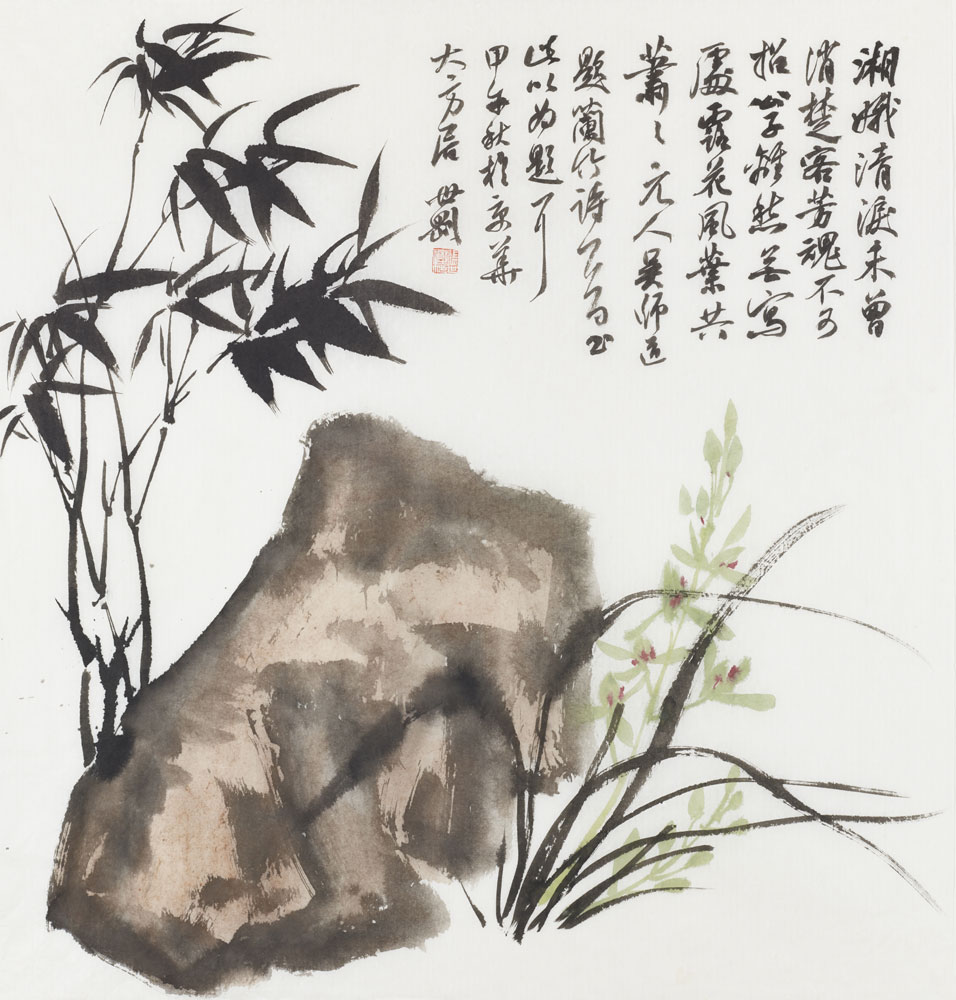 湘娥清淚未曾
消楚客芳魂不可
招公子離愁無寫
處露花風葉共
蕭々元人吳師道
題蘭竹詩
此以为題耳
甲午秋於京華
大方居 世剛